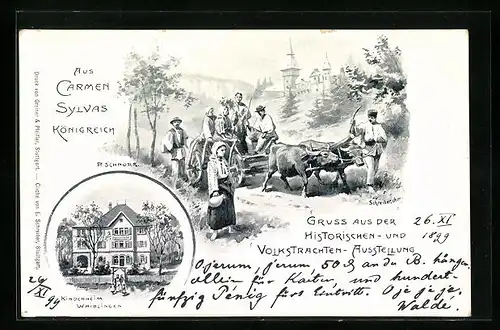 Aus
Carmen
Sylvas
Königreich
P. Schnorr.
Schreiber
Gruss aus der
Historischen- und
Volkstrachten-Ausstellung
26. XI.
1899
Druck von Greiner & Pfeiffer, Stuttgart. — Cliché von G. Schreiber, Stuttgart.
Kinderheim
Waiblingen
26/XI 99
Ojerum, jerum 50 an da B. hängen,
allein für Karten, und hundert-
fünfzig Pfenig fürs Eintritt. Oje je je,
Waldé.